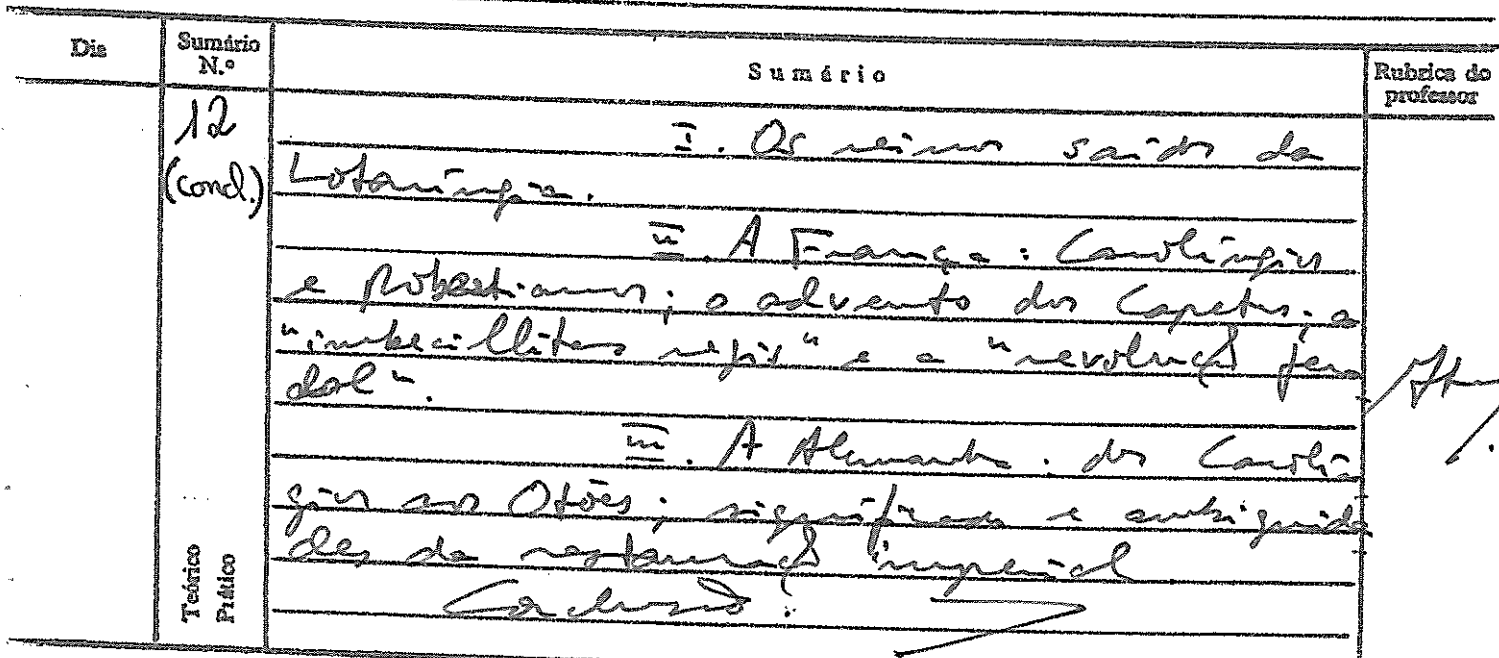 Dia
Sumário
N.º
Sumário
Rubrica do
professor
12
(concl.)
I. Os reinos saídos da
Lotaríngia.
II. A França: Carolíngios
e Robertianos; o advento dos Capetos; a
"imbecillitas regis" e a "revolução feu
dal".
III. A Alemanha: dos Carolín
gios aos Otões; significado e ambiguida
des da restauração imperial
Conclusão.
Teórico
Prático